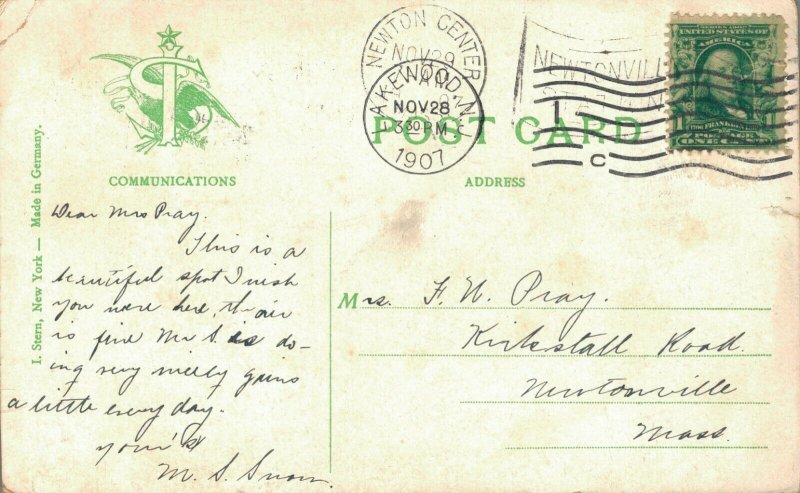 NEWTON CENTER
NOV 29
LAKEWOOD, N.J.
NOV 28
3 30 PM
1907
NEWTONVILLE
C
SERIES 1902
UNITED STATES OF
AMERICA
FRANKLIN
POSTAGE
ONE CENT
POST CARD
COMMUNICATIONS
ADDRESS
I. Stern, New York — Made in Germany.
Dear Mrs Pray.
This is a
beautiful spot I wish
you were here, the air
is fine Mr S. is do-
ing very nicely gains
a little every day.
your's
M. S. Snow.
Mrs. F. W. Pray.
Kirkstall Road.
Newtonville
Mass.